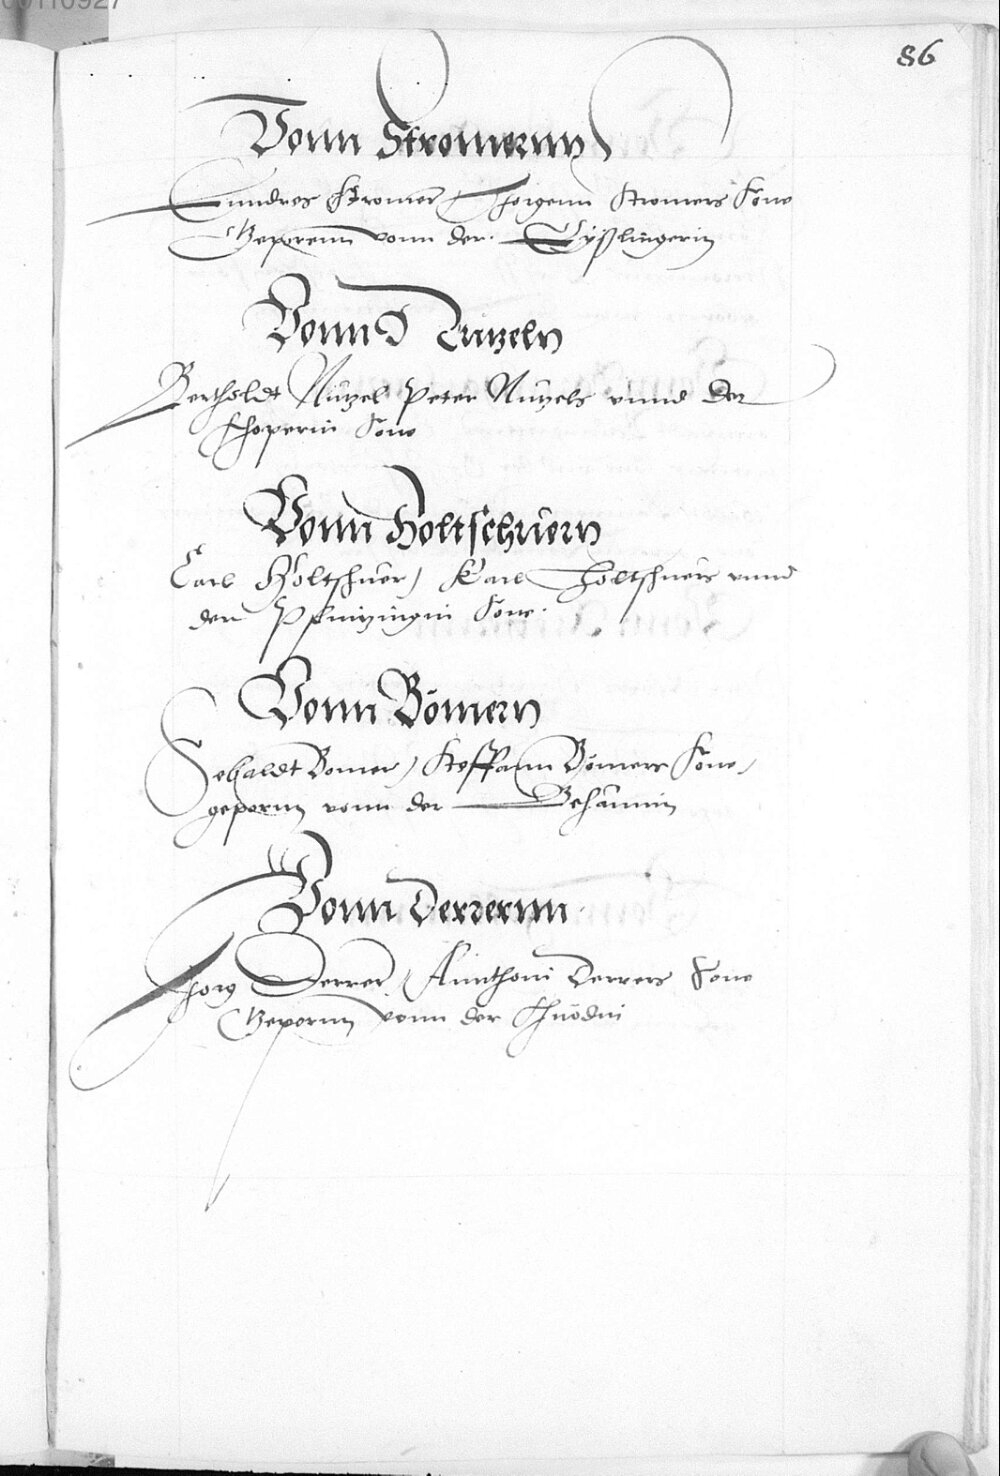 86
Vonn Stromernn
Enndres Stromer Jhorgenn Stromers Sone
Geporenn vonn der Eyßlingerin
Vonn Nutzeln
Bertholdt Nützel Peter Nützels vnnd der
Schoperin Sone
Vonn Holtschuern
Carl Holtschuer, Karl Holtschuers vnnd
der Pfintzingin Sone.
Vonn Bömern
Sebaldt Bomer, Steffann Bömers Sone,
geporn vonn der Behaimin
Vonn Derrernn
Jhorg Derrer, Annthoni Derrers Sone
Geporn vonn der